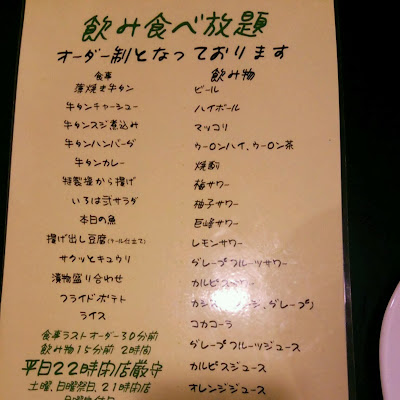 飲み食べ放題
オーダー制となっております
食事
薄焼き牛タン
牛タンチャーシュー
牛タンスジ煮込み
牛タンハンバーグ
牛タンカレー
特製塩から揚げ
いろは弐サラダ
本日の魚
揚げ出し豆腐
サクッとキュウリ
漬物盛り合わせ
フライドポテト
ライス
飲み物
ビール
ハイボール
マッコリ
ウーロンハイ、ウーロン茶
焼酎
梅サワー
柚子サワー
巨峰サワー
レモンサワー
グレープフルーツサワー
カルピスサワー
コカコーラ
グレープフルーツジュース
カルピスジュース
オレンジジュース
食事ラストオーダー30分前
飲み物15分前 2時間
平日22時閉店厳守
土曜、日曜祭日、21時閉店